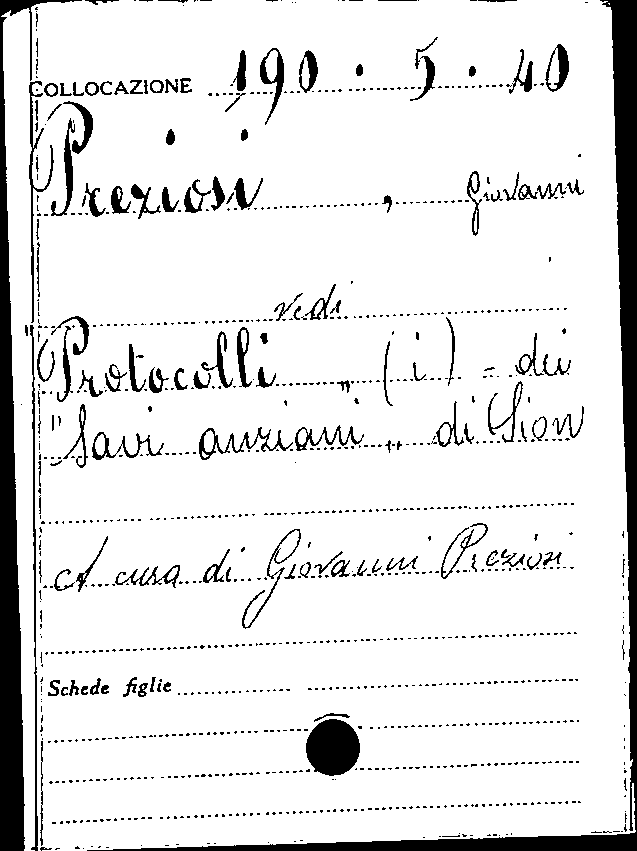 COLLOCAZIONE 190 . 5 . 40
Preziosi , Giovanni
vedi
"Protocolli „ (i) = dei
"Savi anziani „ di Sion
A cura di Giovanni Preziosi
Schede figlie